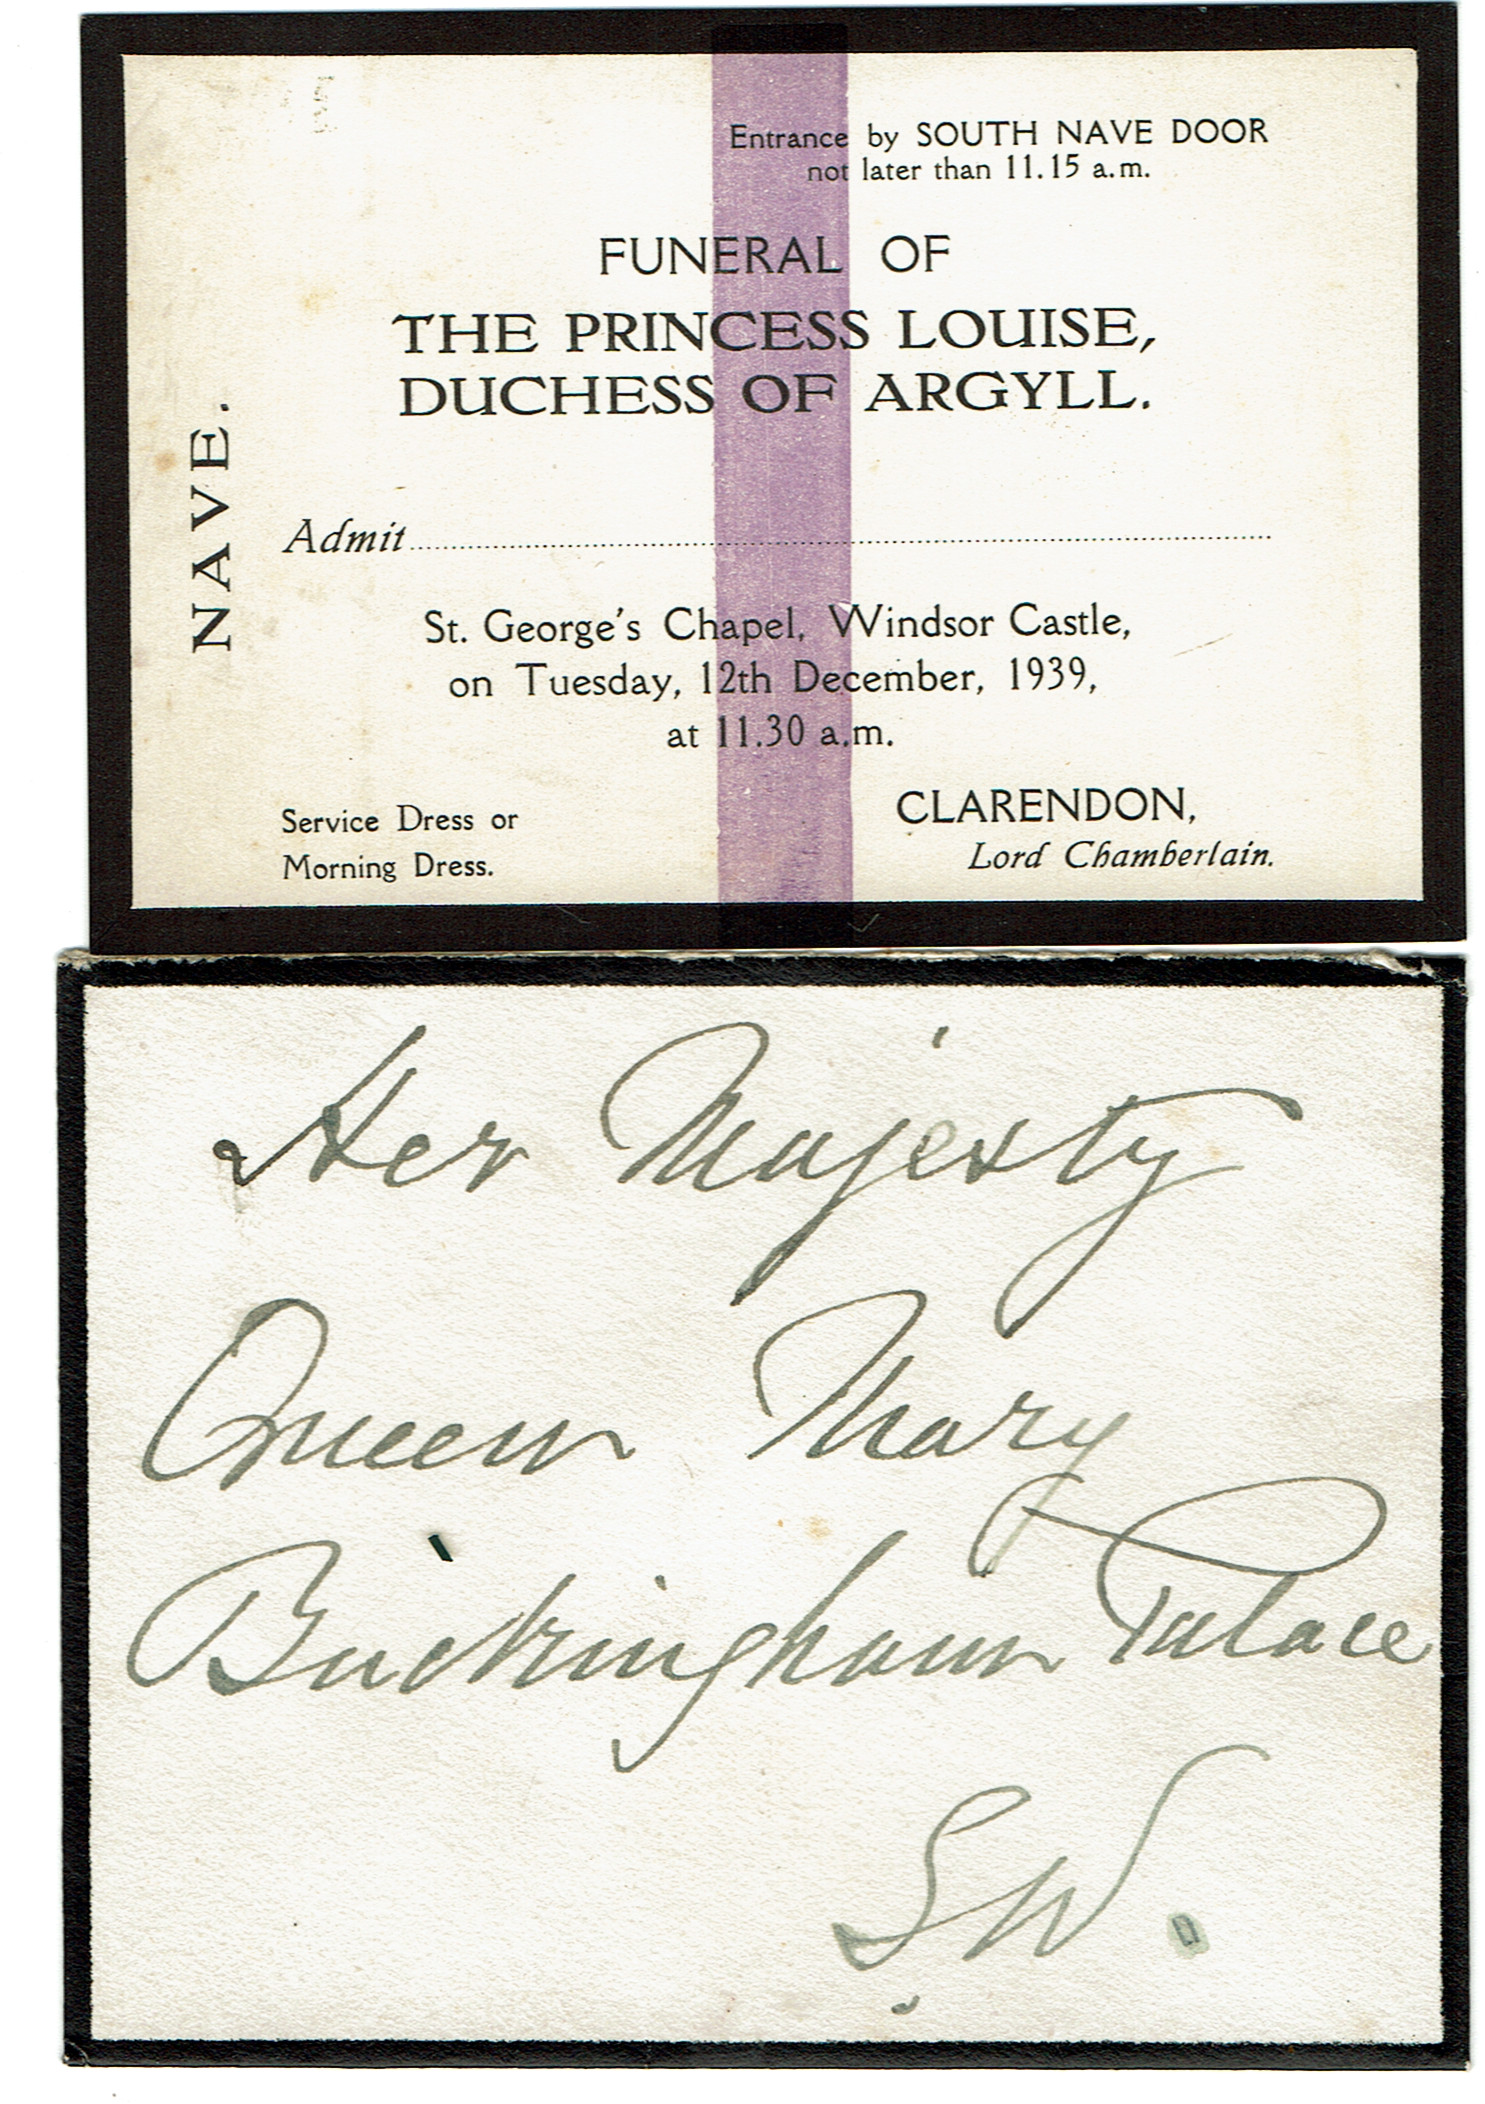 Entrance by SOUTH NAVE DOOR
not later than 11.15 a.m.
FUNERAL OF
THE PRINCESS LOUISE,
DUCHESS OF ARGYLL.
NAVE.
Admit
St. George's Chapel, Windsor Castle,
on Tuesday, 12th December, 1939,
at 11.30 a.m.
Service Dress or
Morning Dress.
CLARENDON,
Lord Chamberlain.
Her Majesty
Queen Mary
Buckingham Palace
S.W.